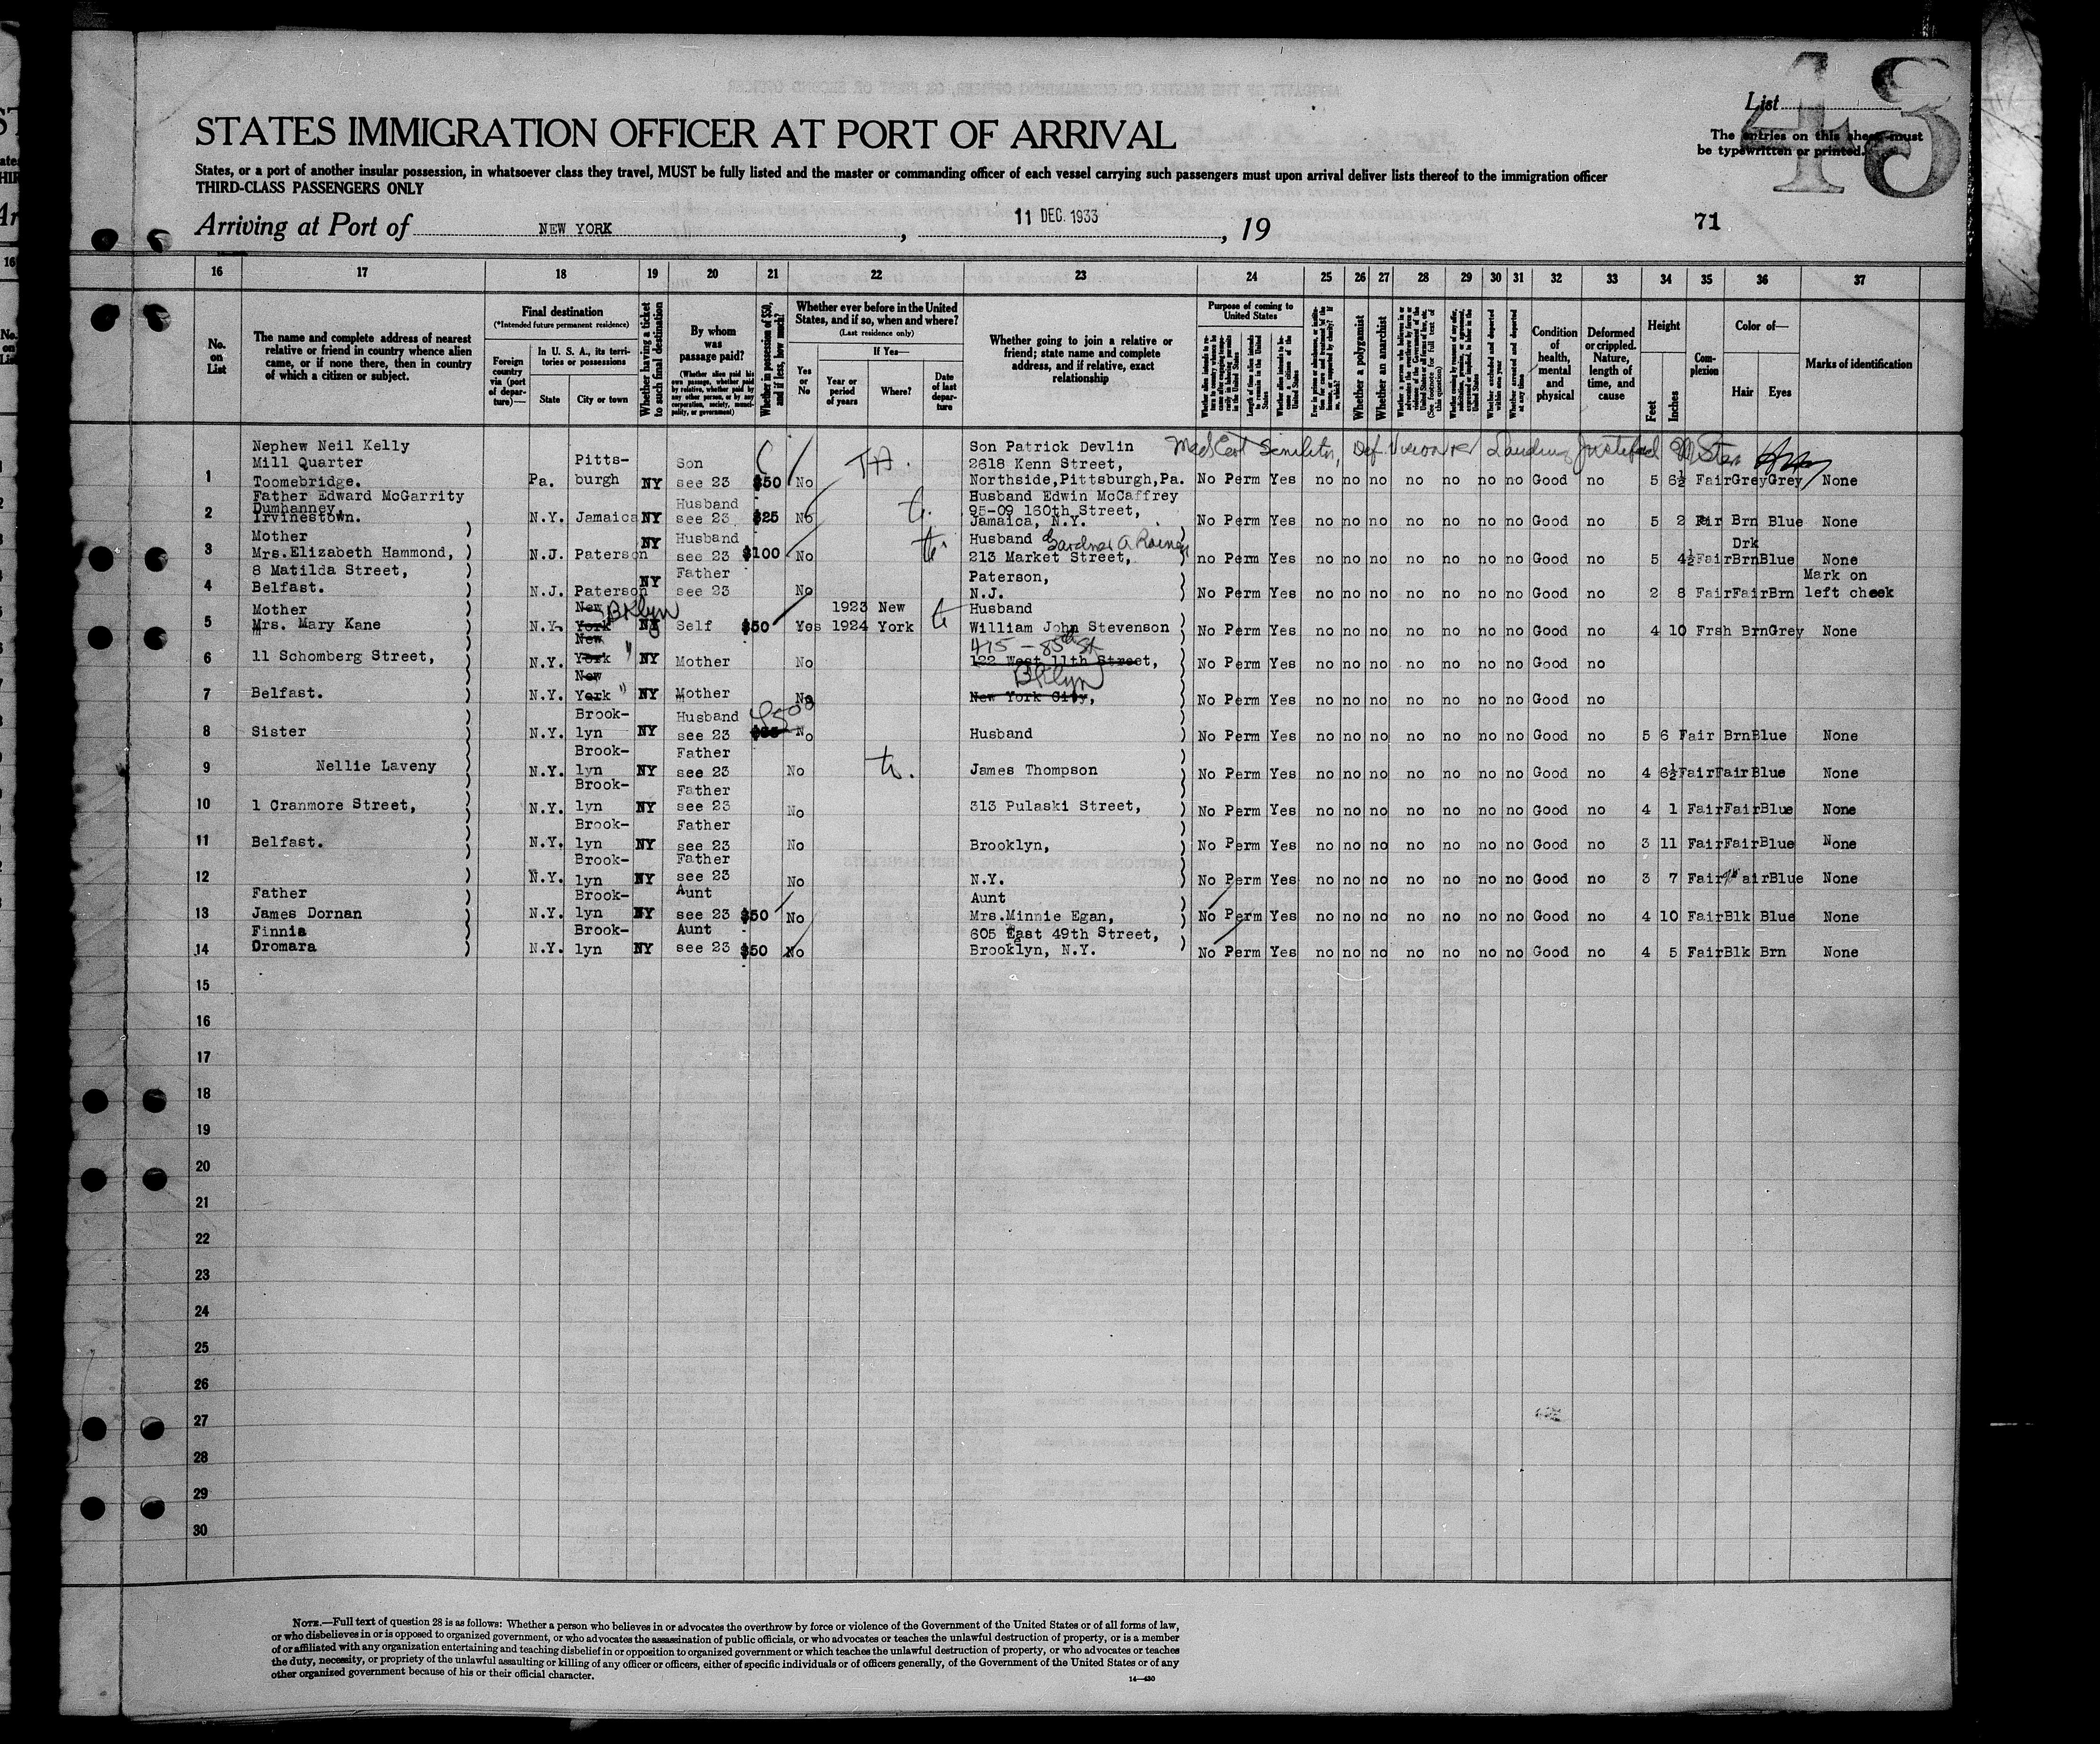 List
48
The entries on this sheet must
be typewritten or printed.
STATES IMMIGRATION OFFICER AT PORT OF ARRIVAL
States, or a port of another insular possession, in whatsoever class they travel, MUST be fully listed and the master or commanding officer of each vessel carrying such passengers must upon arrival deliver lists thereof to the immigration officer
THIRD-CLASS PASSENGERS ONLY
Arriving at Port of NEW YORK, 11 DEC. 1933, 19
71
16 17 18 19 20 21 22 23 24 25 26 27 28 29 30 31 32 33 34 35 36 37
No. on List
The name and complete address of nearest relative or friend in country whence alien came, or if none there, then in country of which a citizen or subject.
Final destination
(*Intended future permanent residence)
Foreign country via (port of departure)—
In U. S. A., its territories or possessions
State
City or town
Whether having a ticket to such final destination
By whom was passage paid?
(Whether alien paid his own passage, whether paid by relative, whether paid by any other person, or by any corporation, society, municipality, or government)
Whether in possession of $50, and if less, how much?
Whether ever before in the United States, and if so, when and where?
(Last residence only)
Yes or No
If Yes—
Year or period of years
Where?
Date of last departure
Whether going to join a relative or friend; state name and complete address, and if relative, exact relationship
Purpose of coming to United States
Whether a polygamist
Whether an anarchist
Condition of health, mental and physical
Deformed or crippled. Nature, length of time, and cause
Height
Feet
Inches
Complexion
Color of—
Hair
Eyes
Marks of identification
Med Cert Senility, Def. Vision
1 Nephew Neil Kelly Mill Quarter Toomebridge. Pa. Pitts- burgh NY Son see 23 $50 No Son Patrick Devlin 2618 Kenn Street, Northside, Pittsburgh, Pa. No Perm Yes no no no no no no no Good no 5 6½ Fair Grey Grey None
2 Father Edward McGarrity Dumhanney Irvinestown. N.Y. Jamaica NY Husband see 23 $25 No Husband Edwin McCaffrey 95-09 160th Street, Jamaica, N.Y. No Perm Yes no no no no no no no Good no 5 2 Fair Brn Blue None
3 Mother Mrs.Elizabeth Hammond, N.J. Paterson NY Husband see 23 $100 No Husband 213 Market Street, no Perm Yes no no no no no no no Good no 5 4½ Fair Drk Brn Blue None
4 8 Matilda Street, Belfast. N.J. Paterson NY Father see 23 No Paterson, N.J. No Perm Yes no no no no no no no Good no 2 8 Fair Fair Brn Mark on left cheek
5 Mother Mrs. Mary Kane N.Y. New York BKlyn NY Self $50 Yes 1923 1924 New York Husband William John Stevenson No Perm Yes no no no no no no no Good no 4 10 Frsh Brn Grey None
6 11 Schomberg Street, N.Y. New York " NY Mother No 415 - 85th St 122 West 11th Street, No Perm Yes no no no no no no no Good no
7 Belfast. N.Y. New York " NY Mother No BKlyn New York City, No Perm Yes no no no no no no no Good no
8 Sister N.Y. Brook- lyn NY Husband see 23 No Husband No Perm Yes no no no no no no no Good no 5 6 Fair Brn Blue None
9 Nellie Laveny N.Y. Brook- lyn NY Father see 23 No James Thompson No Perm Yes no no no no no no no Good no 4 6½ Fair Fair Blue None
10 1 Cranmore Street, N.Y. Brook- lyn NY Father see 23 No 313 Pulaski Street, No Perm Yes no no no no no no no Good no 4 1 Fair Fair Blue None
11 Belfast. N.Y. Brook- lyn NY Father see 23 No Brooklyn, No Perm Yes no no no no no no no Good no 3 11 Fair Fair Blue None
12 N.Y. Brook- lyn NY Father see 23 No N.Y. No Perm Yes no no no no no no no Good no 3 7 Fair Fair Blue None
13 Father James Dornan N.Y. Brook- lyn NY Aunt see 23 $50 No Aunt Mrs.Minnie Egan, No Perm Yes no no no no no no no Good no 4 10 Fair Blk Blue None
14 Finnis Dromara N.Y. Brook- lyn NY Aunt see 23 $50 No 605 East 49th Street, Brooklyn, N.Y. No Perm Yes no no no no no no no Good no 4 5 Fair Blk Brn None
15
16
17
18
19
20
21
22
23
24
25
26
27
28
29
30
NOTE.—Full text of question 28 is as follows: Whether a person who believes in or advocates the overthrow by force or violence of the Government of the United States or of all forms of law,
or who disbelieves in or is opposed to organized government, or who advocates the assassination of public officials, or who advocates or teaches the unlawful destruction of property, or is a member
of or affiliated with any organization entertaining and teaching disbelief in or opposition to organized government or which teaches the unlawful destruction of property, or who advocates or teaches
the duty, necessity, or propriety of the unlawful assaulting or killing of any officer or officers, either of specific individuals or of officers generally, of the Government of the United States or of any
other organized government because of his or their official character.
14—430